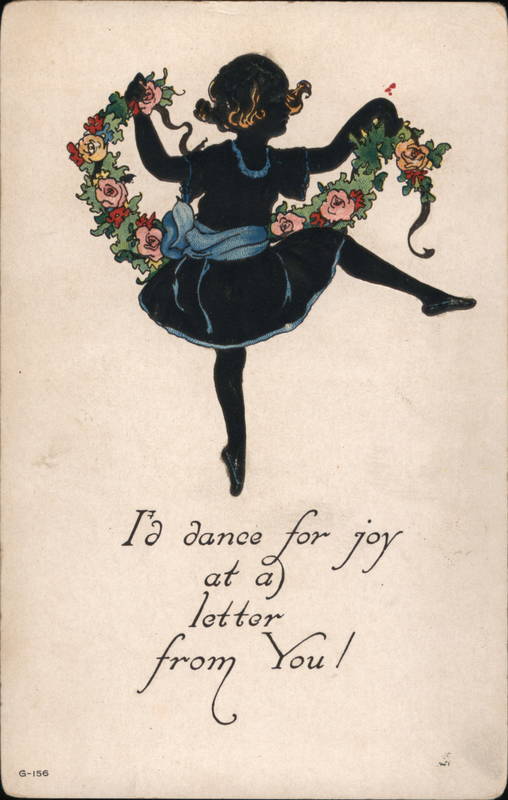 I'd dance for joy
at a
letter
from You!
G-156